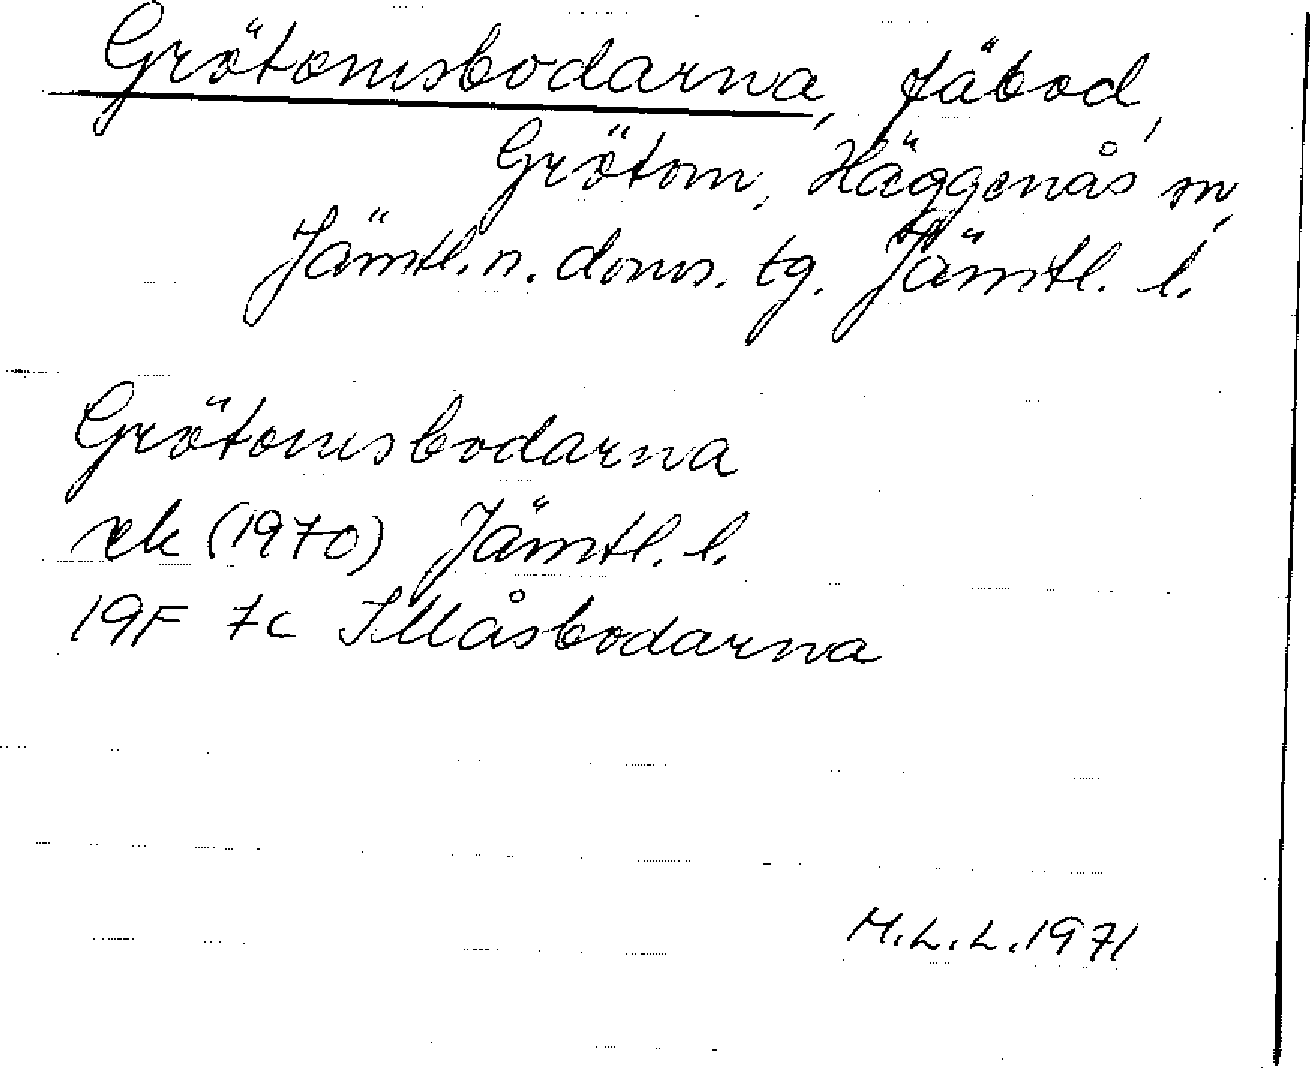 Grötomsbodarna, fäbod,
Grötom, Häggenås sn,
Jämtl. n. doms. tg. Jämtl. l.
Grötomsbodarna
rek (1970) Jämtl. l.
19F 7c Illåsbodarna
M.L.L. 1971